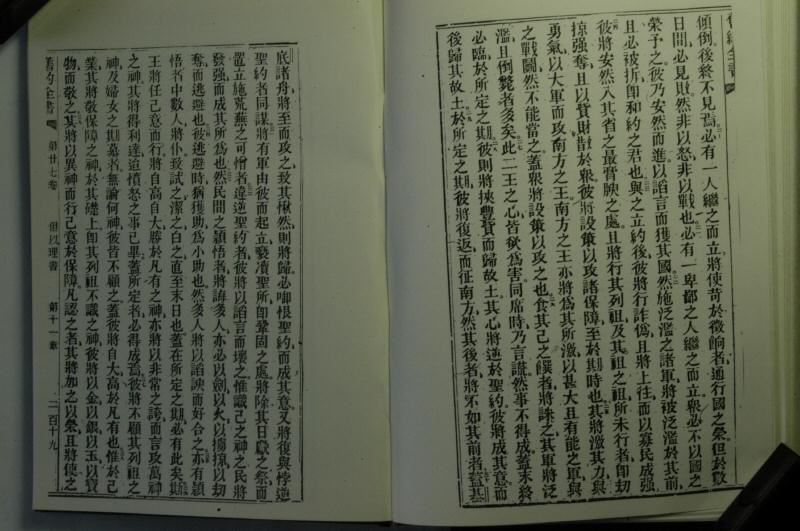 舊約全書
傾倒後終不見焉必有一人繼之而立將使苛於徵餉者通行國之榮但於數
日間必見敗然非以怒非以戰也必有一卑鄙之人繼之而立眾必不以國之
榮予之彼乃安然而進以謟言而獲其國然施泛濫之諸軍將被泛濫於其前
且必被折卽和約之君也與之立約後彼將行詐偽且將上往而以寡民成强
彼將安然入其省之最膏腴之處且將行其列祖及其祖之祖所未行者卽刼
掠强奪且以貨財散於眾彼將設策以攻諸保障至於期時也其將激其力與
勇氣以大軍而攻南方之王南方之王亦將爲其所激以甚大且有能之軍與
之戰鬪然不能當之蓋眾將設策以攻之也食其己之饌者將誅之其軍將泛
濫且倒斃者多矣此二王之心皆欲爲害同席時乃言謊然事不得成蓋末終
必臨於所定之期彼則將挾豐貲而歸故土其心將逆於聖約彼將成其意而
後歸其故土於所定之期彼將復返而征南方然其後者將不如其前者蓋基
底諸舟將至而攻之致其愀然則將歸必啣恨聖約而成其意又將復與悖逆
聖約者同謀將有軍由彼而起立褻凟聖所卽鞏固之處將除其日獻之祭而
置立施荒蕪之可憎者違逆聖約者彼將以謟言而壞之惟識己之神之民將
發强而成其所爲也然民間之穎悟者將誨多人亦必以劍以火以擄掠以刼
奪而逃避也彼逃避時稍獲助爲小助也然多人將以謟諛而好合之亦有穎
悟者中數人將仆致試之潔之白之直至末日也蓋在所定之期必有此矣斯
王將任己意而行將自高自大勝於凡有之神亦將以非常之誇而言攻萬神
之神其將得利達迨憤怒之事已畢蓋所定者必得成焉彼將不顧其列祖之
神及婦女之期慕者無論何神彼皆不顧之蓋彼將自大高於凡有也惟於己
業其將敬保障之神於其礎上卽其列祖不識之神彼將以金以銀以玉以寶
物而敬之其將以異神而行己意於保障凡認之者其將加之以榮且將使之
舊約全書 第廿七卷 但以理書 第十一章 二百十九